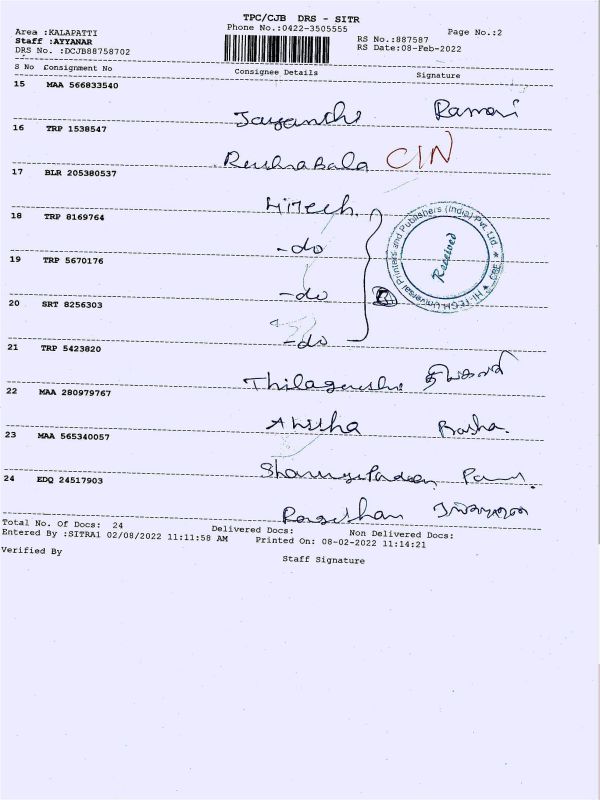 TPC/CJB DRS - SITR
Phone No.:0422-3505555
Page No.:2
Area :KALAPATTI
Staff :AYYANAR
DRS No. :DCJB88758702
RS No.:887587
RS Date:08-Feb-2022
S No Consignment No Consignee Details Signature
15 MAA 566833540
Jayanthi Ramani
16 TRP 1538547
RudraBala CIN
17 BLR 205380537
HiTech.
18 TRP 8169764
-do
19 TRP 5670176
-do
20 SRT 8256303
-do
Hi-TECH Universal Printers and Publishers (India) Pvt. Ltd. * CBE *
Received
21 TRP 5423820
22 MAA 280979767
Anusha Basha.
23 MAA 565340057
24 EDQ 24517903
Total No. Of Docs: 24 Delivered Docs: Non Delivered Docs:
Entered By :SITRA1 02/08/2022 11:11:58 AM Printed On: 08-02-2022 11:14:21
Verified By
Staff Signature